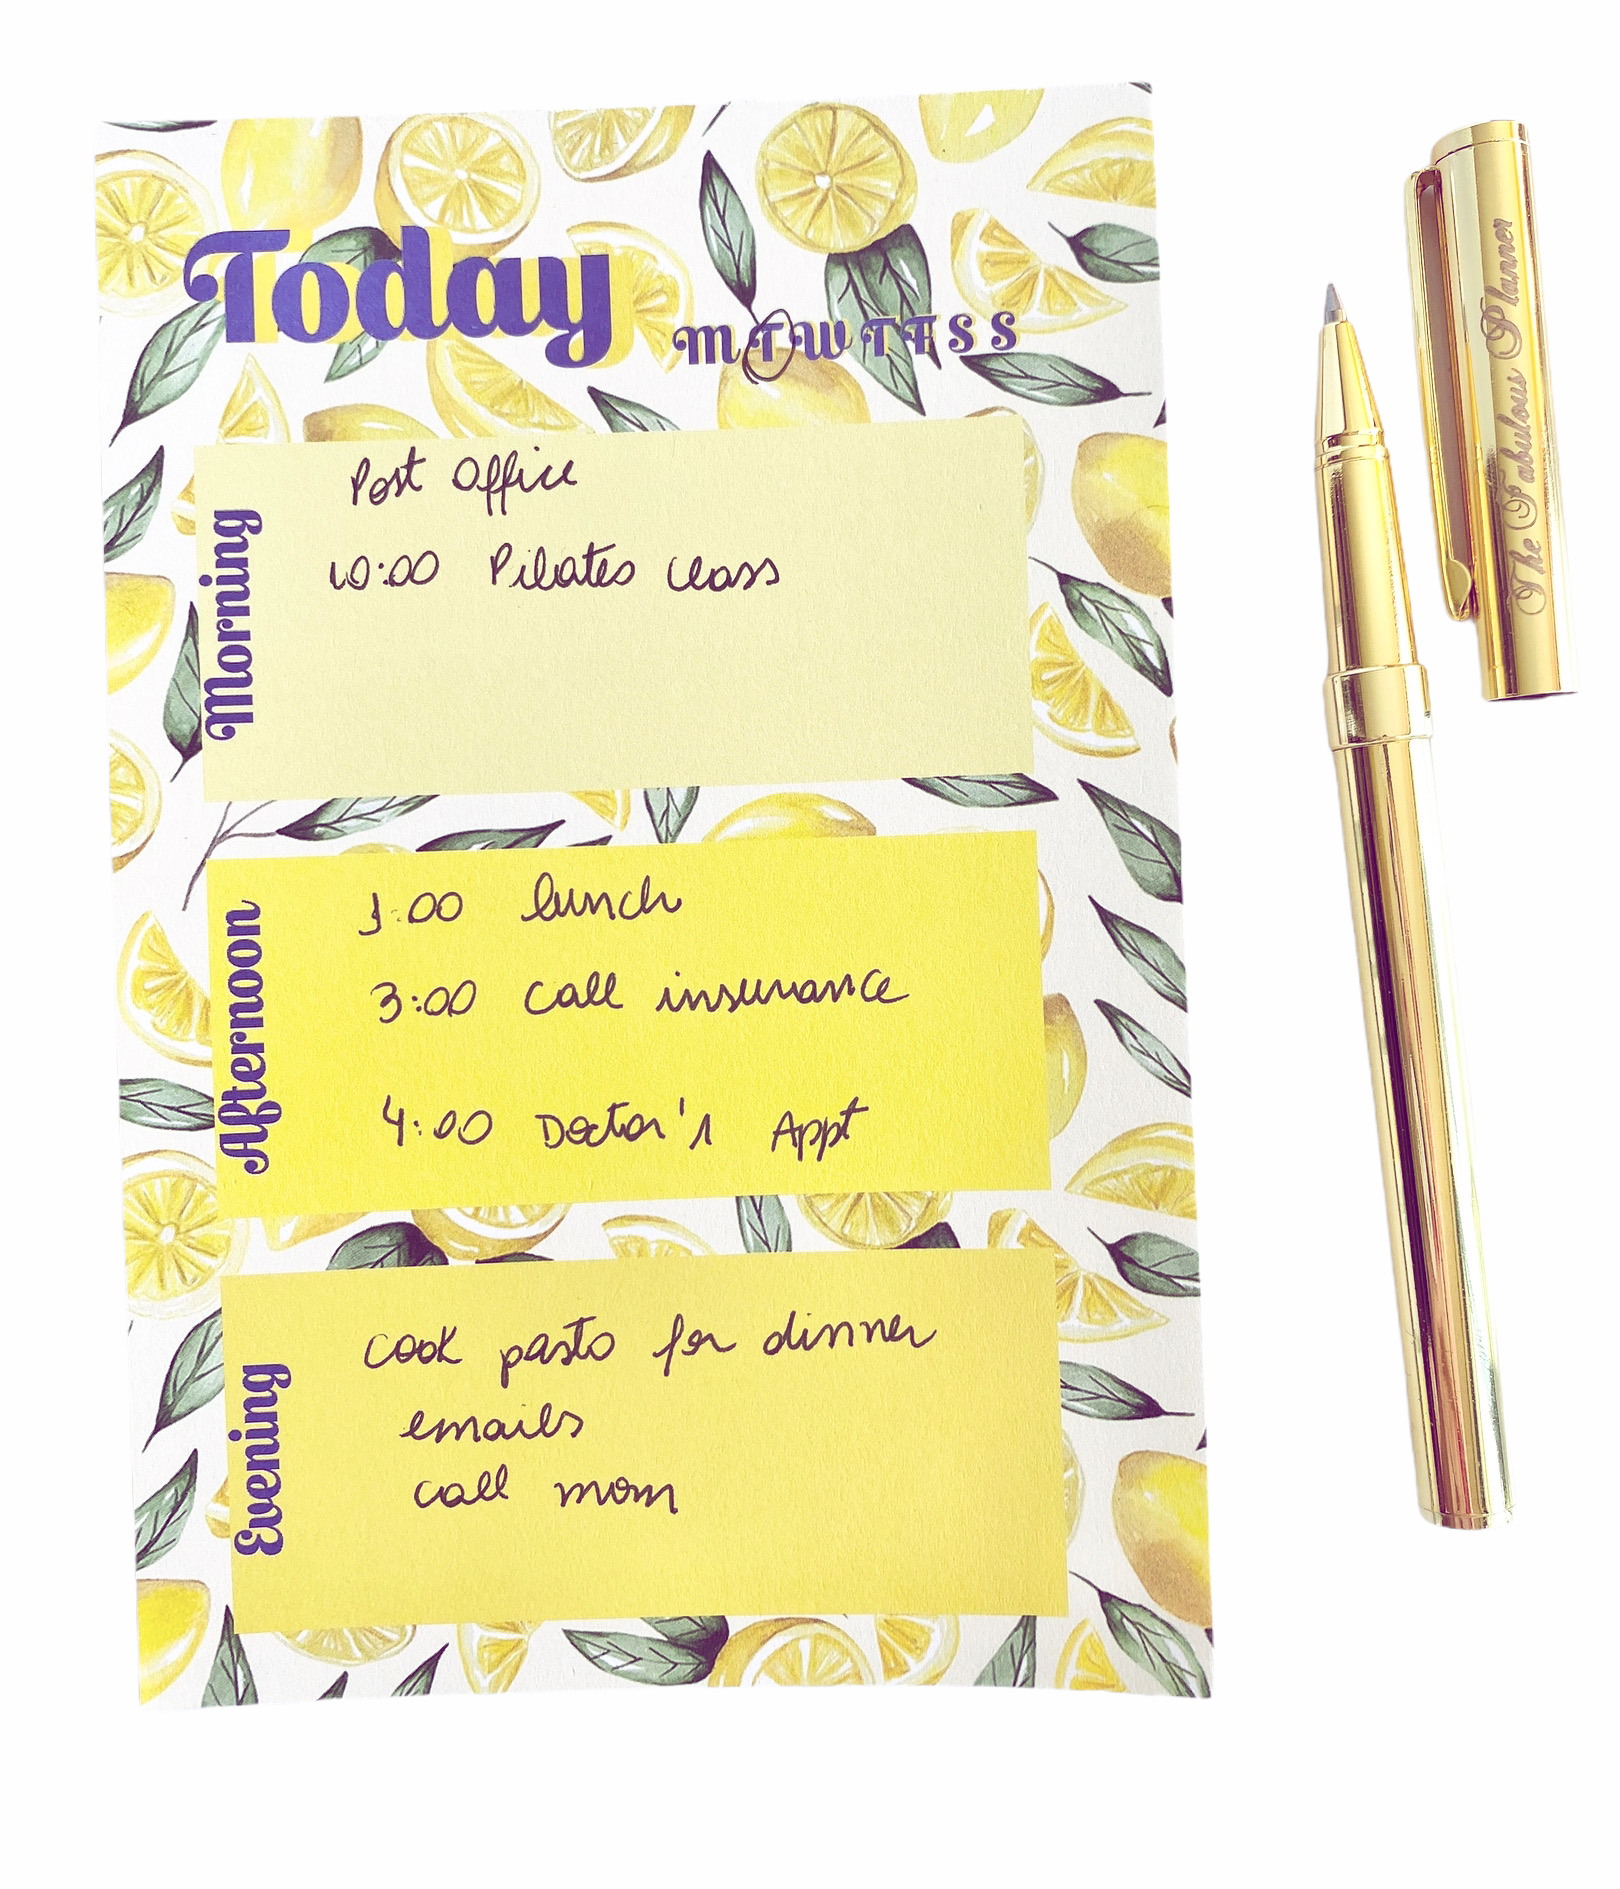 Today
M T W T F S S
Morning
Post Office
10:00 Pilates class
Afternoon
1:00 lunch
3:00 call insurance
4:00 Doctor's Appt
Evening
cook pasta for dinner
emails
call mom
The Fabulous Planner